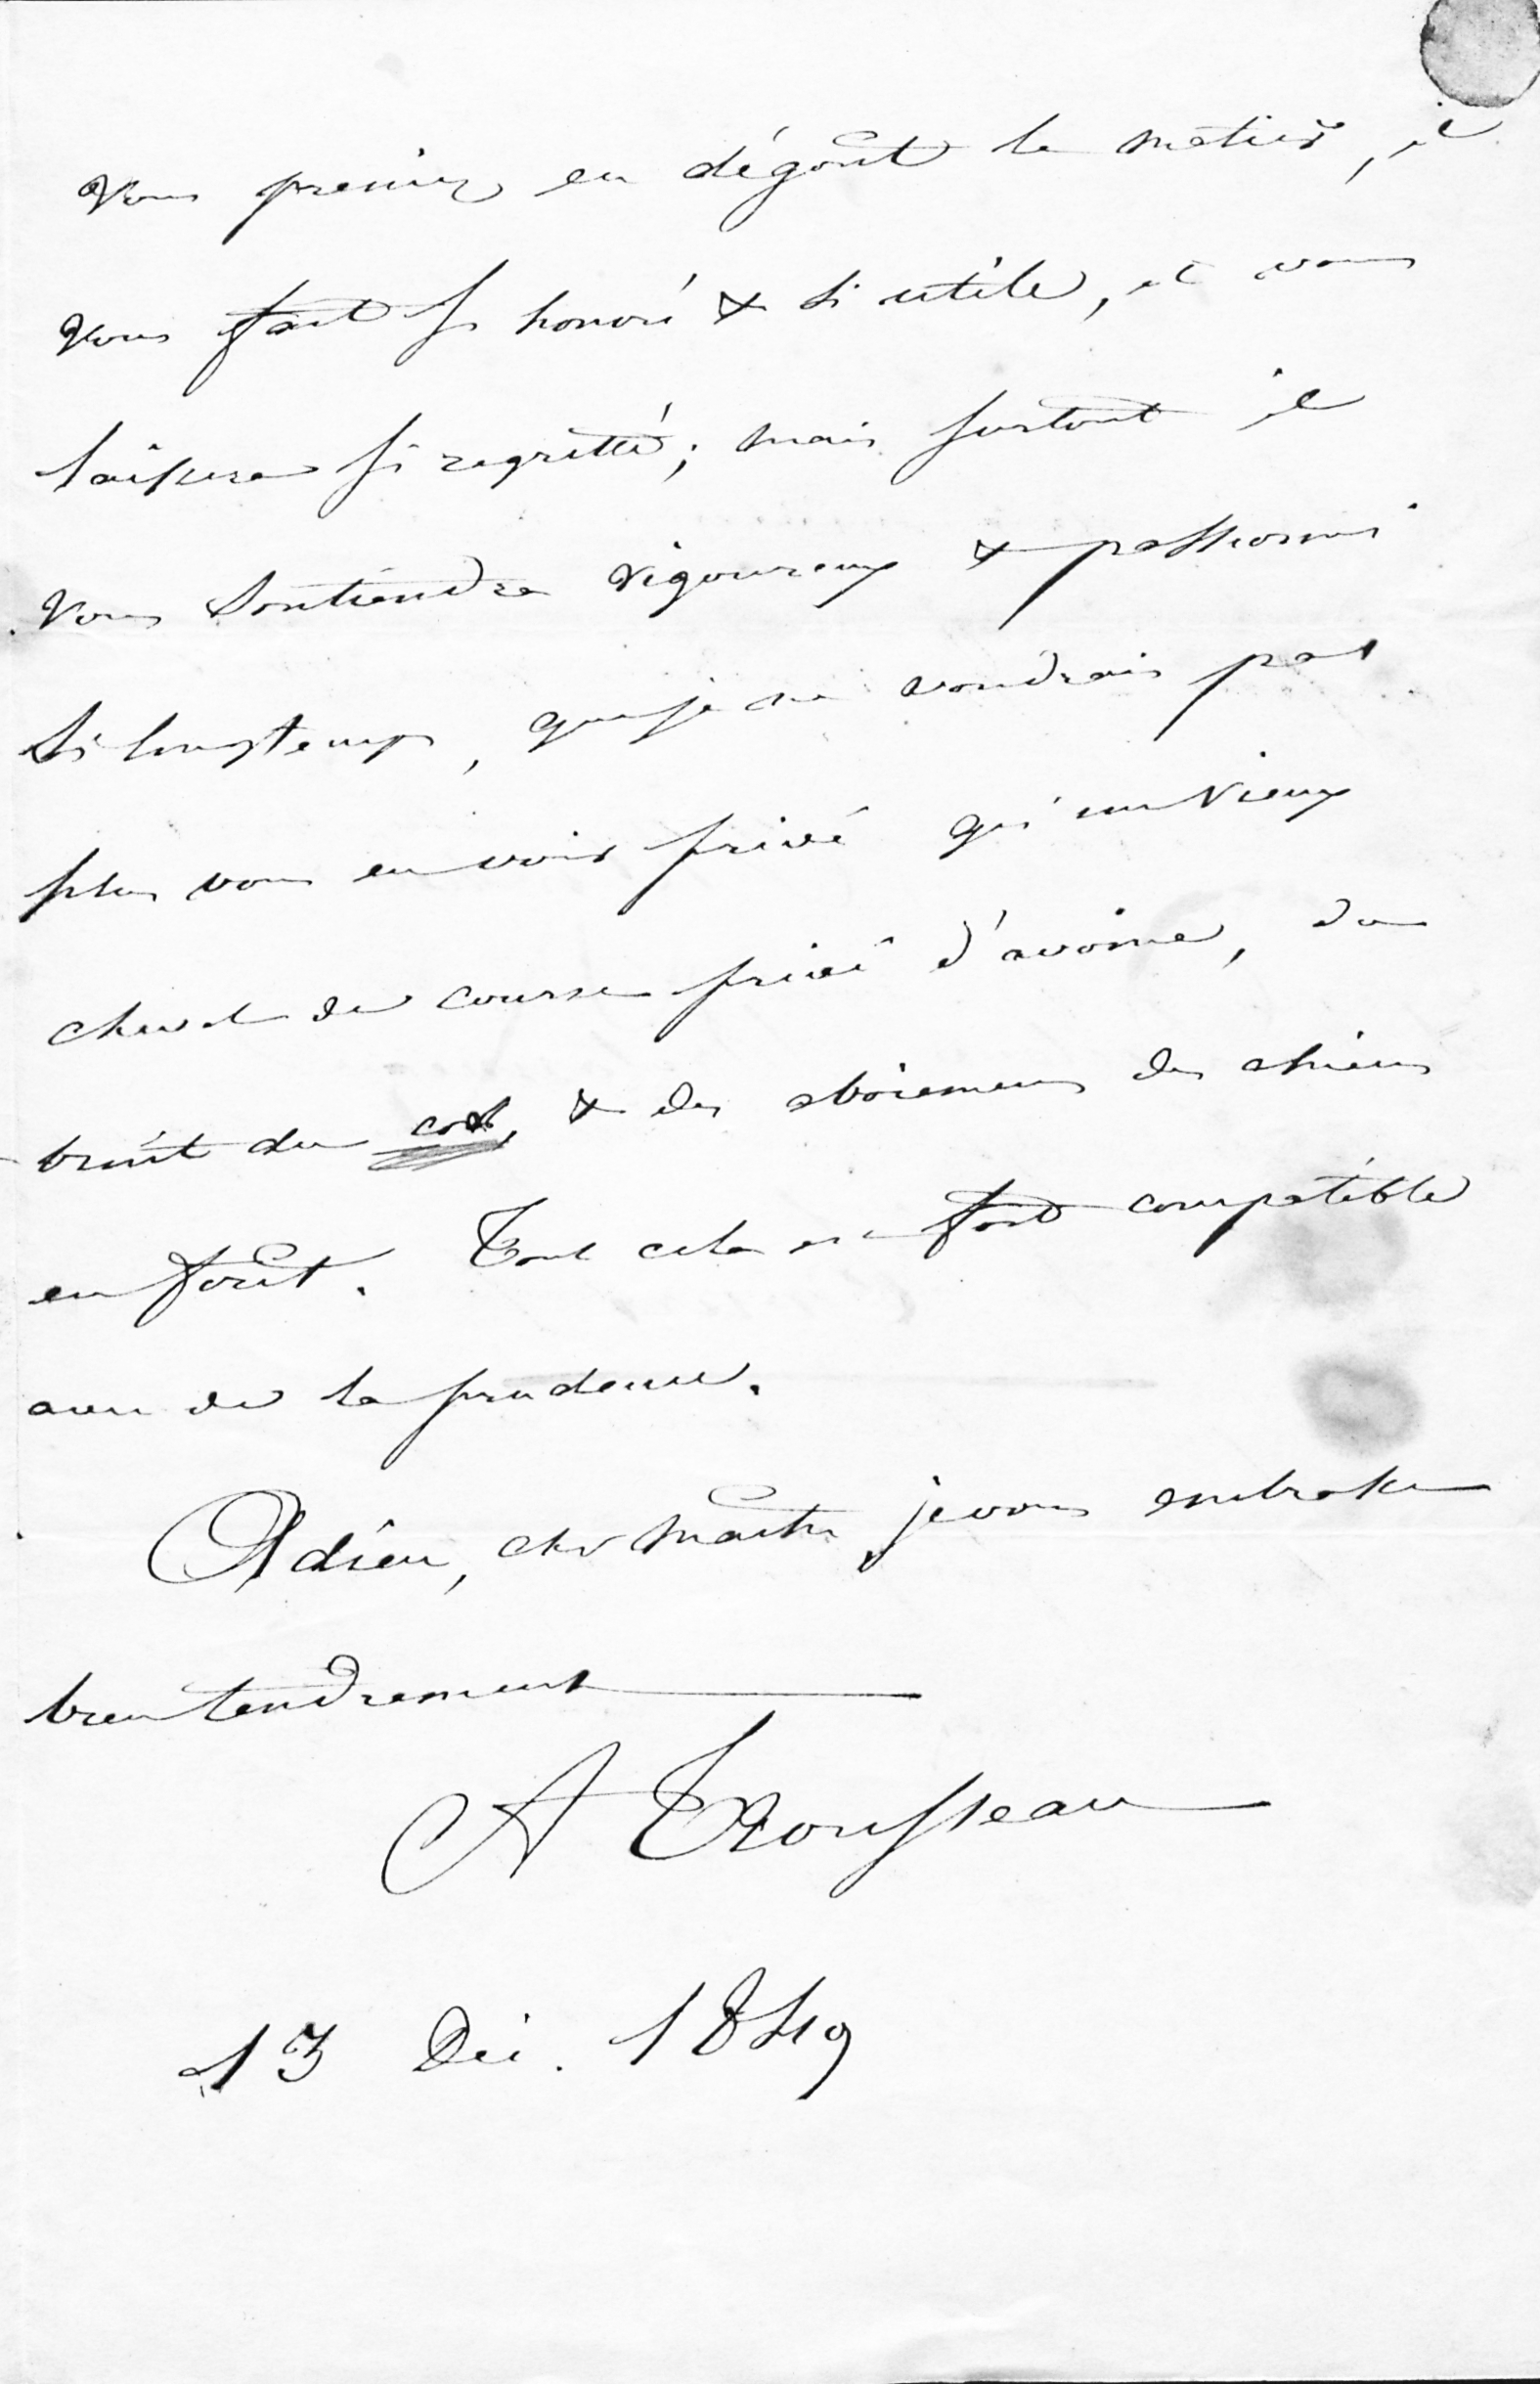 vous preniez en dégoût le métier, il
vous fait si honoré & si utile, il vous
laissera si regretté; mais surtout il
vous soutiendra vigoureux & passionné
si longtemps, que je ne voudrais pas
plus vous en voir privé qu'un vieux
cheval de course privé d'avoine, du
bruit du cor, & des aboiemens des chiens
en forêt. Tout cela est fort compatible
avec de la prudence.
Adieu, cher maître, je vous embrasse
bien tendrement
A Trousseau
13 Déc. 1849